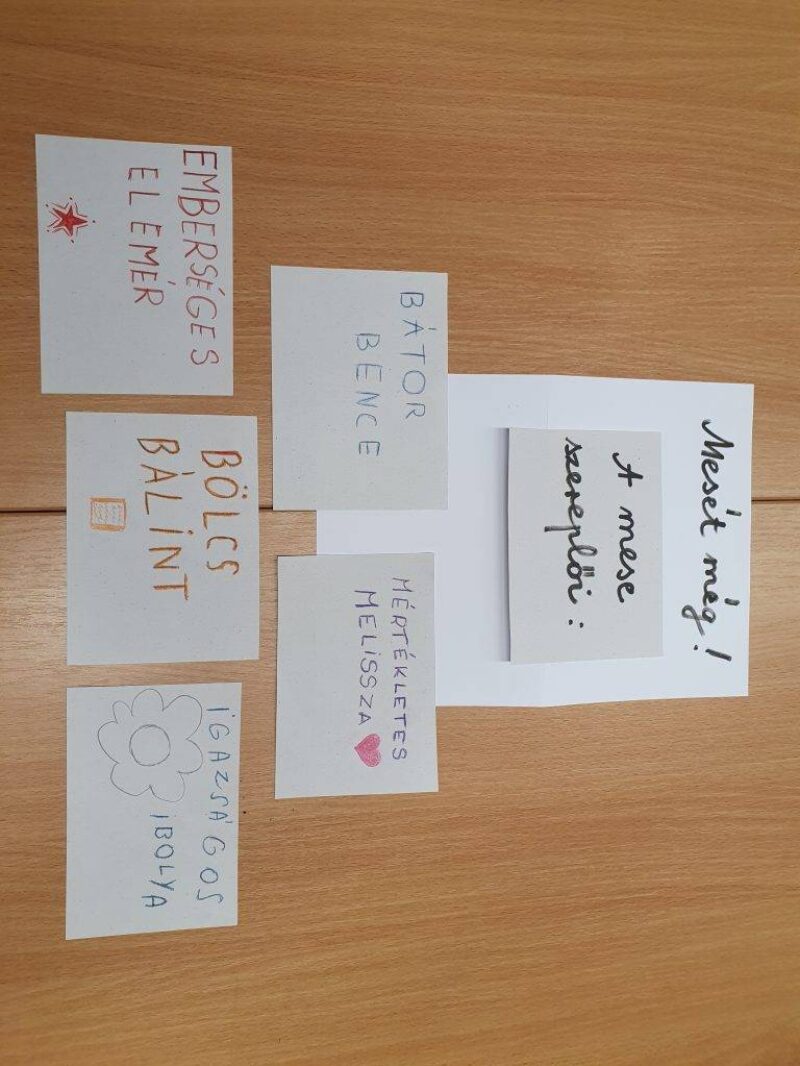 Mesét még!
A mese
szereplői:
BÁTOR
BENCE
MÉRTÉKLETES
MELISSZA
EMBERSÉGES
ELEMÉR
BÖLCS
BÁLINT
IGAZSÁGOS
IBOLYA